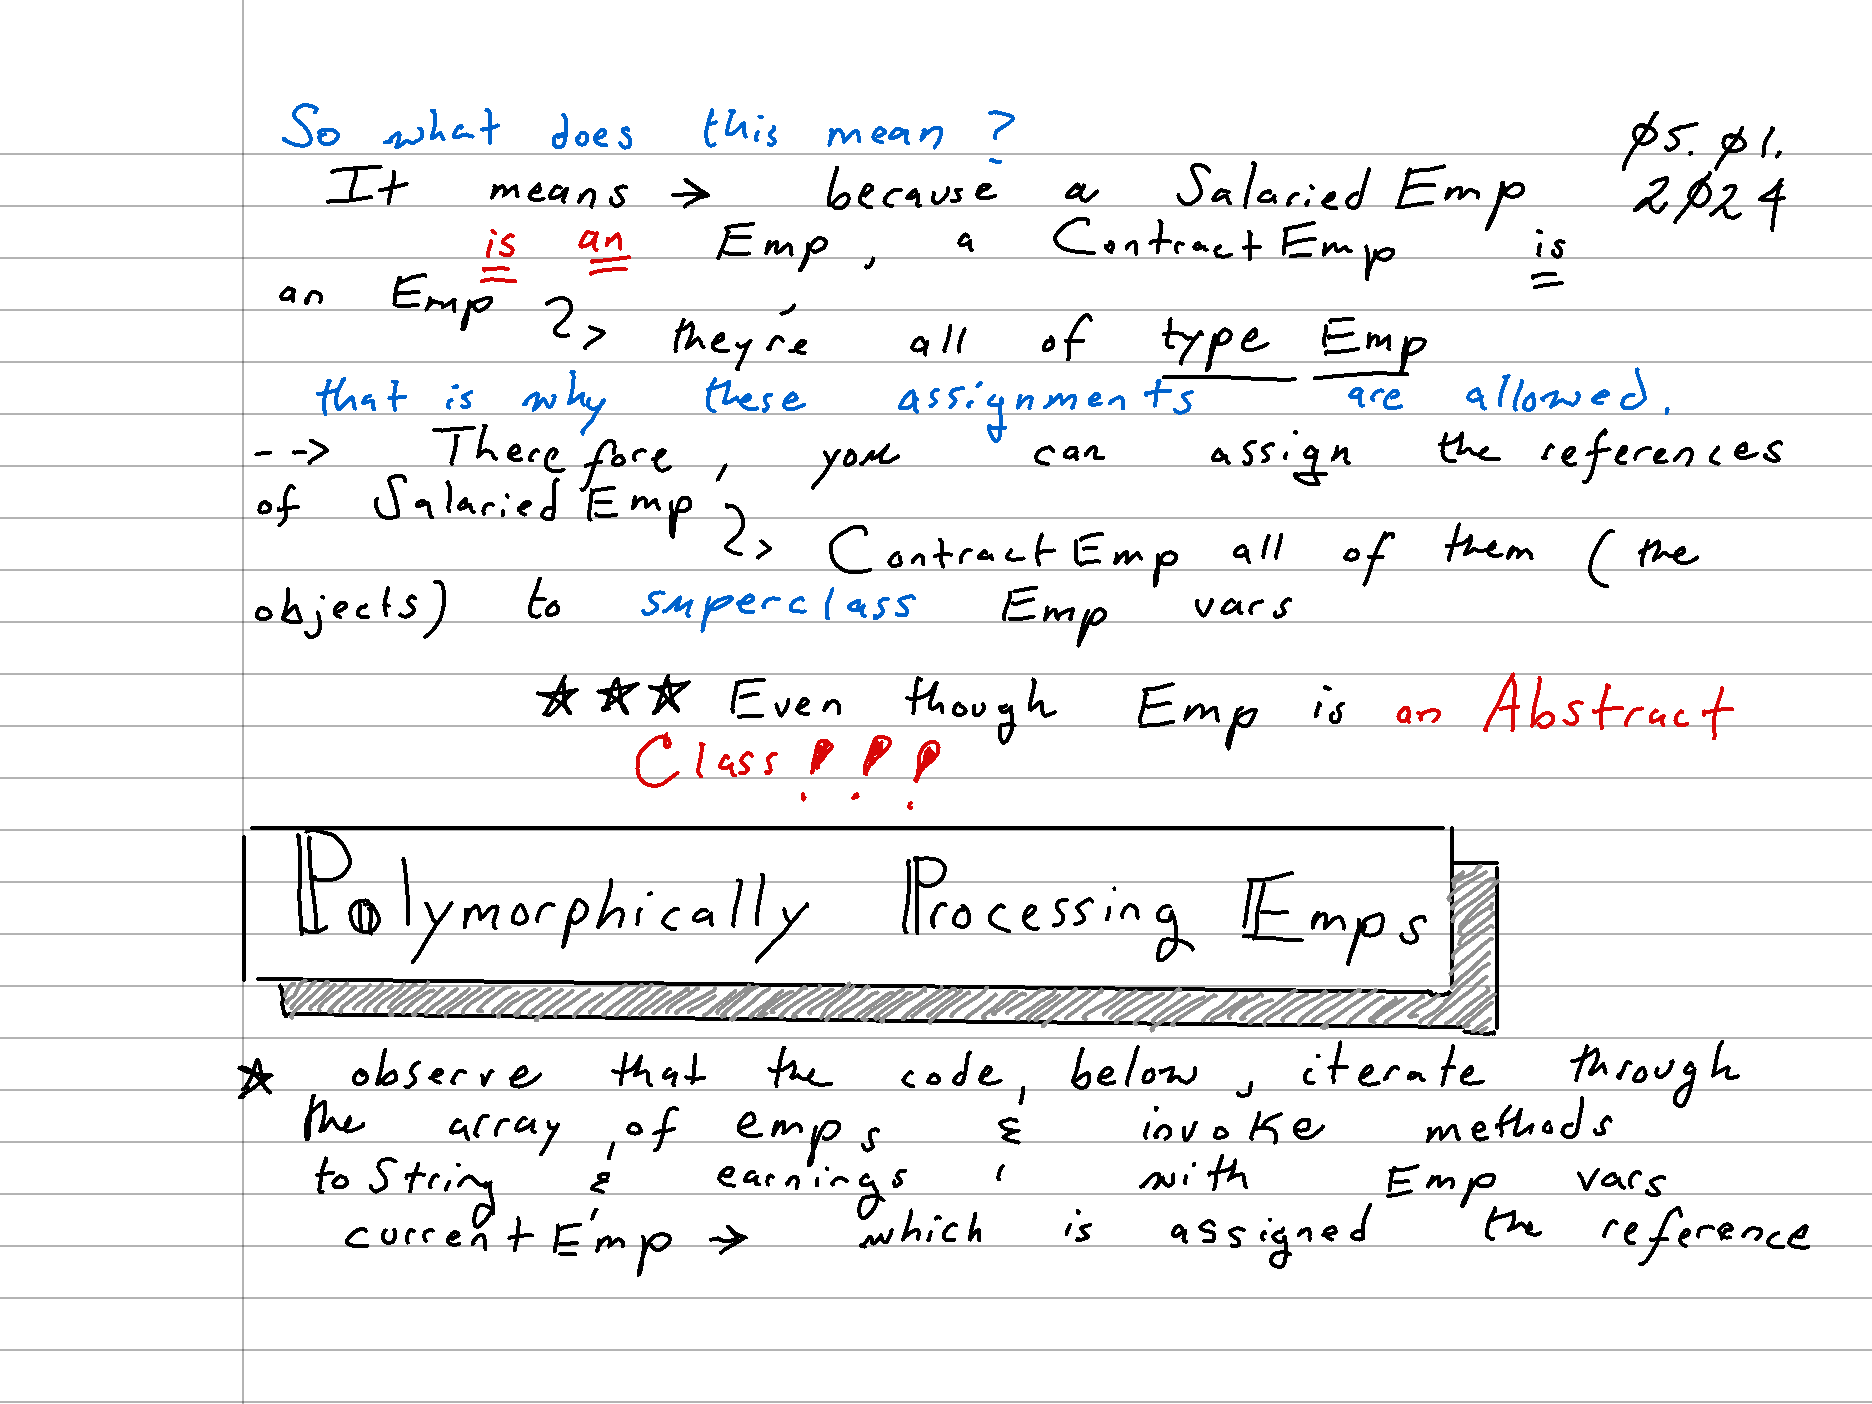 So what does this mean?
Ø5. Ø1.
2Ø24
It means → because a SalariedEmp
is an Emp, a ContractEmp is
an Emp
they're all of type Emp
that is why these assignments are allowed.
--> Therefore, you can assign the references
of SalariedEmp
ContractEmp all of them (the
objects) to superclass Emp vars
★★★ Even though Emp is an Abstract
Class!!!
Polymorphically Processing Emps
★ observe that the code, below, iterate through
the array of emps & invoke methods
toString & earnings with Emp vars
currentEmp → which is assigned the reference